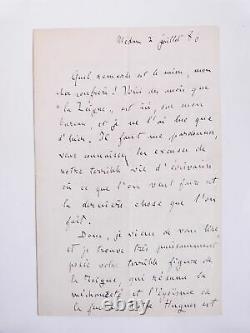 Médan 2 juillet 80
Quel remords est le mien, mon
cher confrère! Voici des mois que
"la Teigne", est ici, sur mon
bureau, et je ne l'ai lue que
d'hier. Il faut me pardonner,
vous connaissez les excuses de
notre terrible vie d'écrivains
où ce que l'on veut faire est
la dernière chose que l'on
fait.
Donc, je viens de vous lire
et je trouve très puissamment
posée votre terrible figure de
la Teigne, qui résume la
méchanceté et l'égoïsme de
la Hugues est